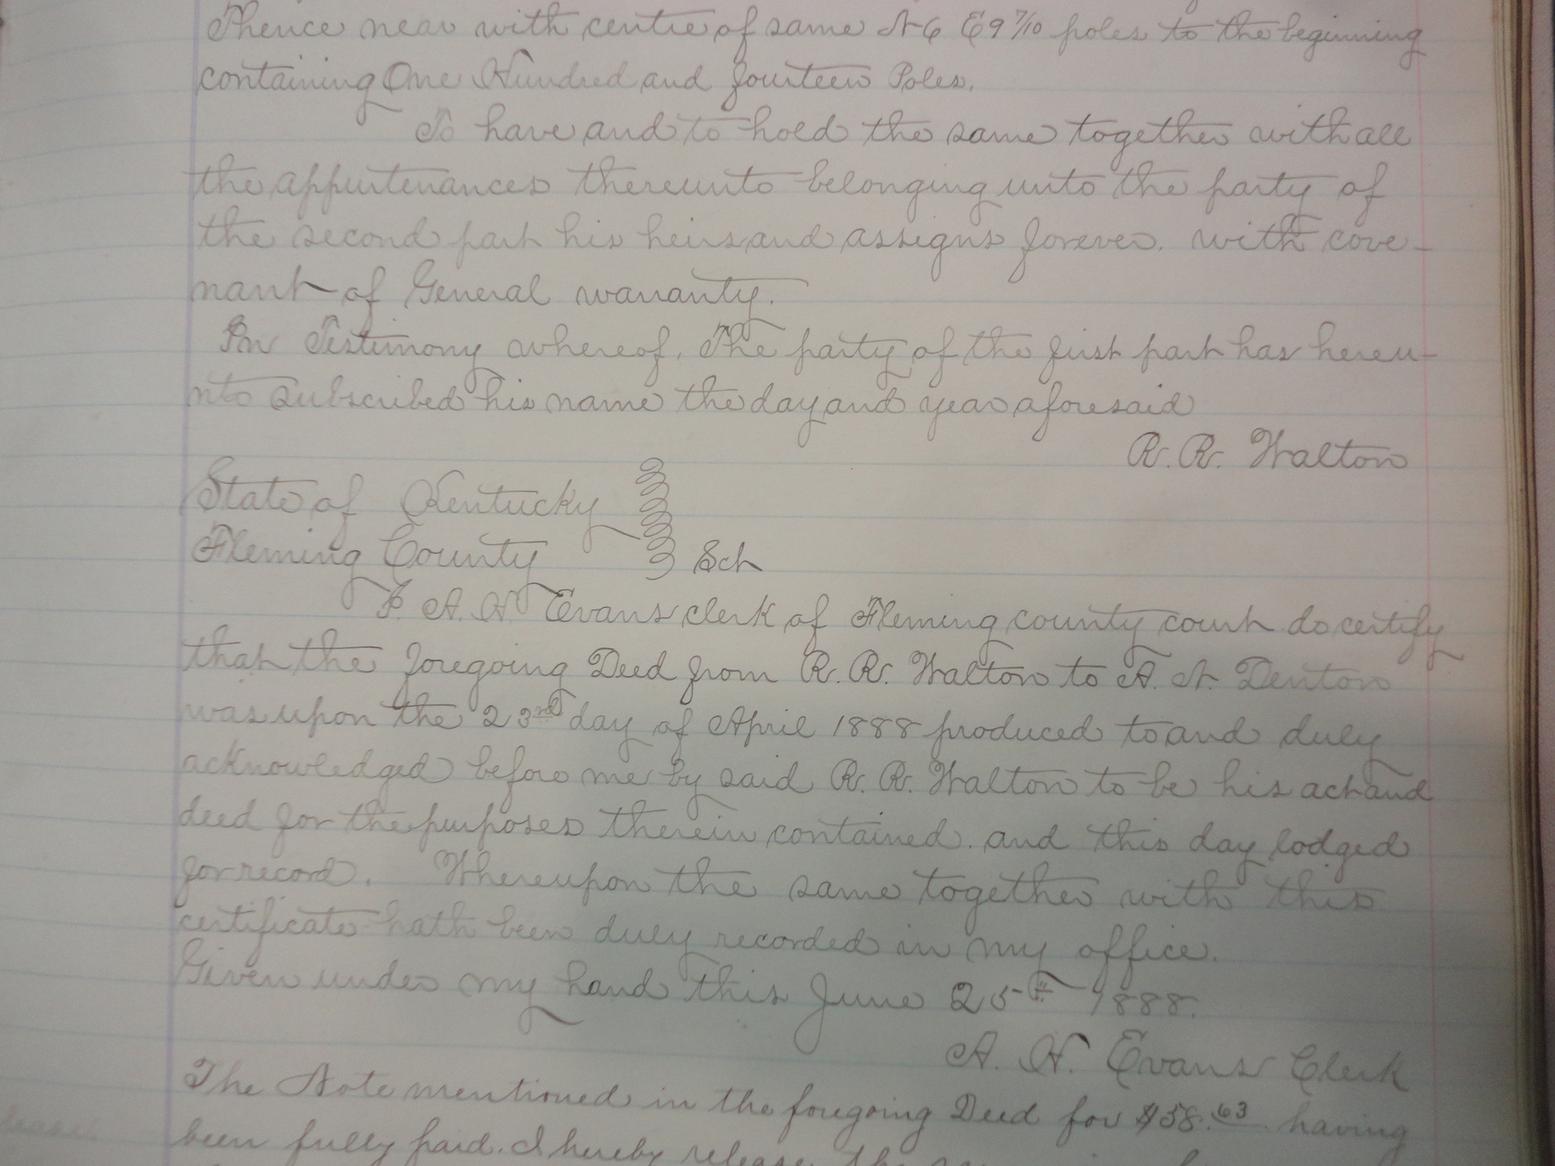 Thence near with centre of same N 6 E 9 7/10 poles to the beginning
containing One Hundred and fourteen Poles.
To have and to hold the same together with all
the appurtenances thereunto belonging unto the party of
the second part his heirs and assigns forever. with cove-
nant of General warranty.
In Testimony whereof, The party of the first part has hereu-
nto subscribed his name the day and year aforesaid
R. R. Walton
State of Kentucky
Fleming County Sct
I. A. H. Evans clerk of Fleming county court do certify
that the foregoing Deed from R. R. Walton to A. N. Denton
was upon the 23rd day of April 1888 produced to and duly
acknowledged before me by said R. R. Walton to be his act and
deed for the purposes therein contained. and this day lodged
for record. Whereupon the same together with this
certificate hath been duly recorded in my office.
Given under my hand this June 25th 1888.
A. H. Evans Clerk
The Note mentioned in the foregoing Deed for $58.63 having
been fully paid. I hereby release the